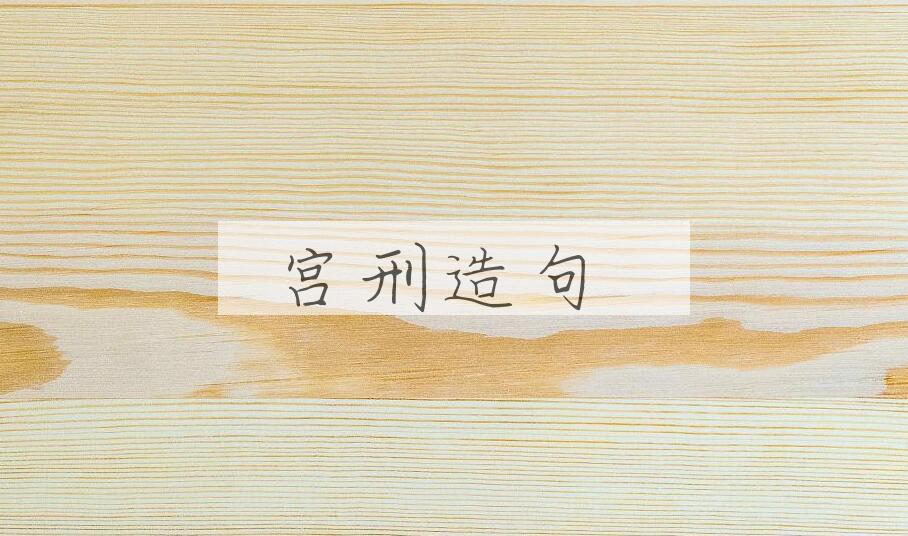 宫刑造句